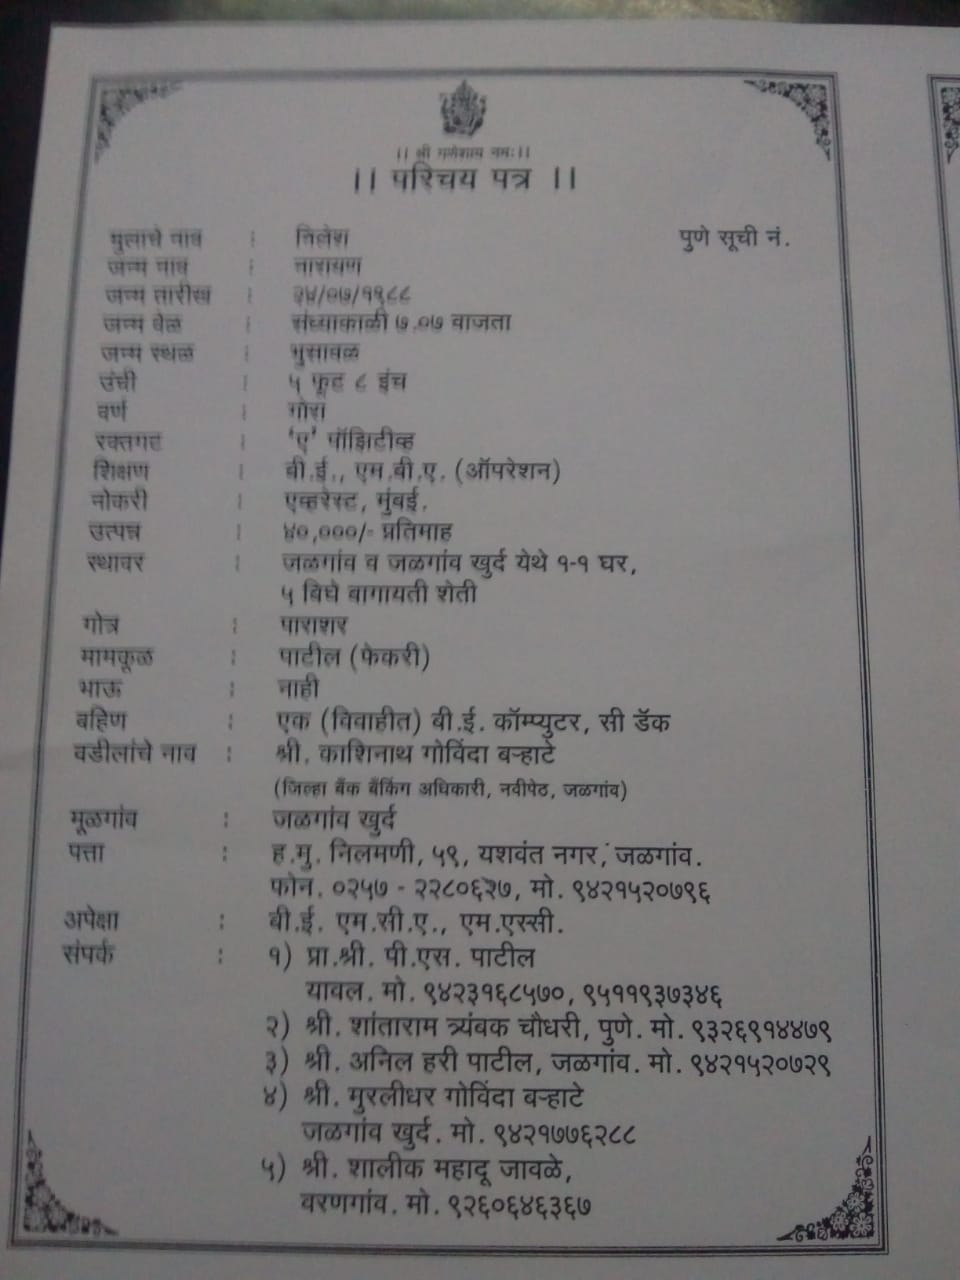 ।। श्री गणेशाय नमः।।
।। परिचय पत्र ।।
पुणे सूची नं.
मुलाचे नाव : निलेश
जन्म नाव : नारायण
जन्म तारीख : २४/०७/१९८८
जन्म वेळ : संध्याकाळी ७.०७ वाजता
जन्म स्थळ : भुसावळ
उंची : ५ फूट ८ इंच
वर्ण : गोरा
रक्तगट : 'ए' पॉझिटीव्ह
शिक्षण : बी.ई., एम.बी.ए. (ऑपरेशन)
नोकरी : एव्हरेस्ट, मुंबई.
उत्पन्न : ४०,०००/- प्रतिमाह
स्थावर : जळगांव व जळगांव खुर्द येथे १-१ घर,
५ बिघे बागायती शेती
गोत्र : पाराशर
मामकूळ : पाटील (फेकरी)
भाऊ : नाही
बहिण : एक (विवाहीत) बी.ई. कॉम्प्युटर, सी डॅक
वडीलांचे नाव : श्री. काशिनाथ गोविंदा बऱ्हाटे
(जिल्हा बँक बँकिंग अधिकारी, नवीपेठ, जळगांव)
मूळगांव : जळगांव खुर्द
पत्ता : ह.मु. निलमणी, ५९, यशवंत नगर, जळगांव.
फोन. ०२५७ - २२८०६२७, मो. ९४२१५२०७९६
अपेक्षा : बी.ई. एम.सी.ए., एम.एस्सी.
संपर्क : १) प्रा.श्री. पी.एस. पाटील
यावल. मो. ९४२३१६८५७०, ९५११९३७३४६
२) श्री. शांताराम त्र्यंबक चौधरी, पुणे. मो. ९३२६९१४४७९
३) श्री. अनिल हरी पाटील, जळगांव. मो. ९४२१५२०७२९
४) श्री. मुरलीधर गोविंदा बऱ्हाटे
जळगांव खुर्द. मो. ९४२१७७६२८८
५) श्री. शालीक महादू जावळे,
वरणगांव. मो. ९२६०६४६३६७